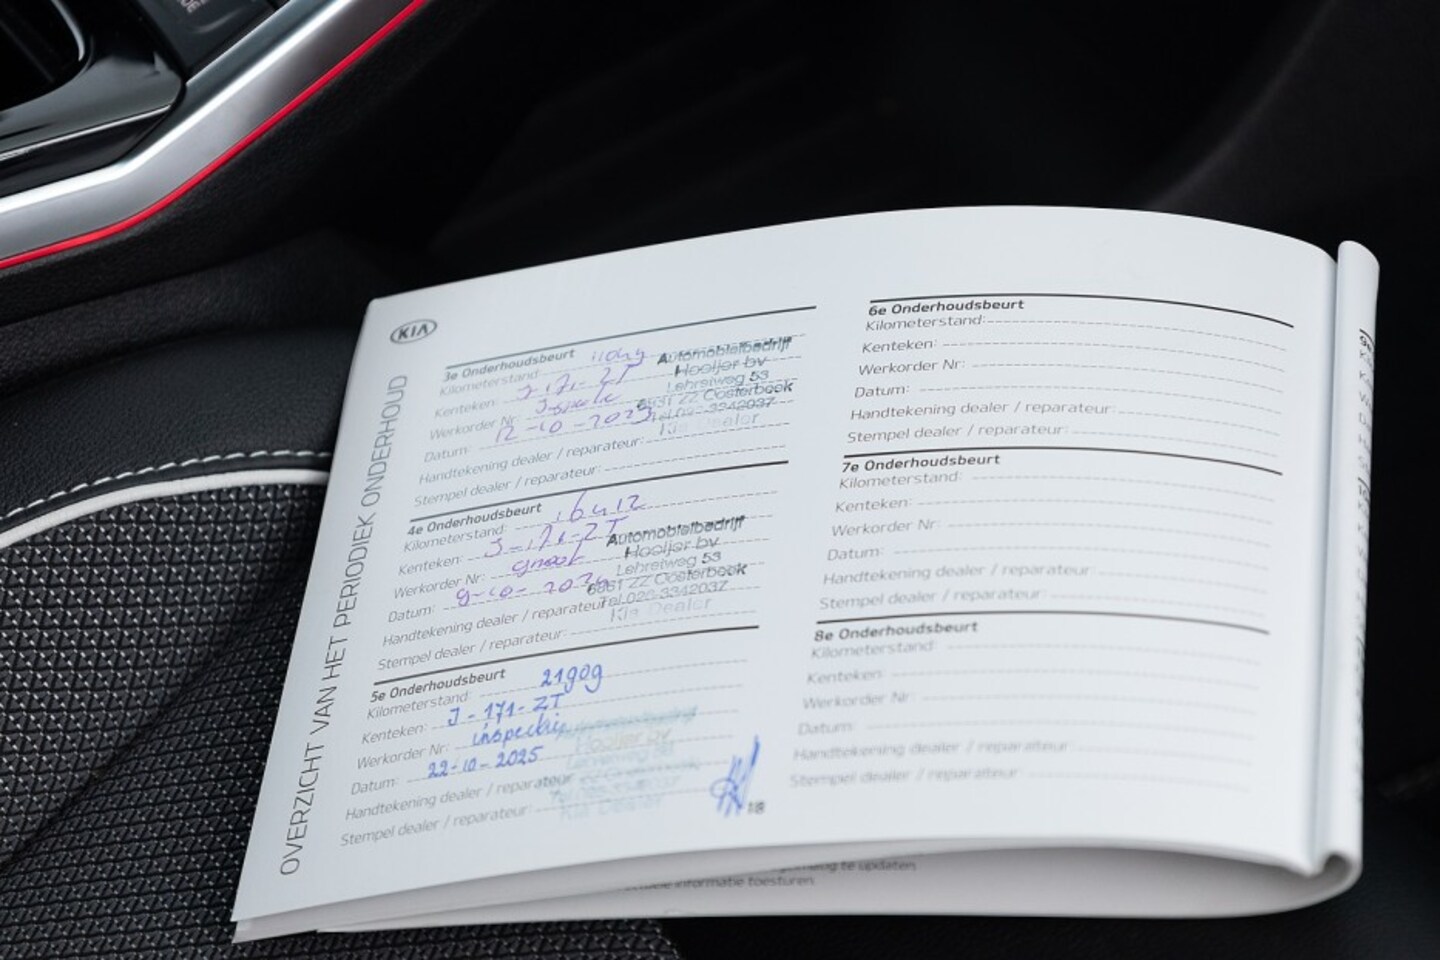 KIA
OVERZICHT VAN HET PERIODIEK ONDERHOUD
3e Onderhoudsbeurt
Kilometerstand:
Kenteken: J-171-ZT
Werkorder Nr:
Datum: 12-10-2023
Handtekening dealer / reparateur:
Stempel dealer / reparateur:
Automobielbedrijf
Hooijer bv
Lehreiweg 53
6861 ZZ Oosterbeek
Kia Dealer
4e Onderhoudsbeurt
Kilometerstand: 16412
Kenteken: J-171-ZT
Werkorder Nr: groot
Datum: 9-10-2024
Handtekening dealer / reparateur:
Stempel dealer / reparateur:
Automobielbedrijf
Hooijer bv
Lehreiweg 53
6861 ZZ Oosterbeek
Tel.026-3342037
Kia Dealer
5e Onderhoudsbeurt
Kilometerstand: 21909
Kenteken: J-171-ZT
Werkorder Nr: inspectie
Datum: 22-10-2025
Handtekening dealer / reparateur
Stempel dealer / reparateur:
Hooijer bv
Kia Dealer
118
6e Onderhoudsbeurt
Kilometerstand:
Kenteken:
Werkorder Nr:
Datum:
Handtekening dealer / reparateur:
Stempel dealer / reparateur:
7e Onderhoudsbeurt
Kilometerstand:
Kenteken:
Werkorder Nr:
Datum:
Handtekening dealer / reparateur:
Stempel dealer / reparateur:
8e Onderhoudsbeurt
Kilometerstand:
Kenteken:
Werkorder Nr:
Datum:
Handtekening dealer / reparateur:
Stempel dealer / reparateur:
te updaten
informatie toesturen